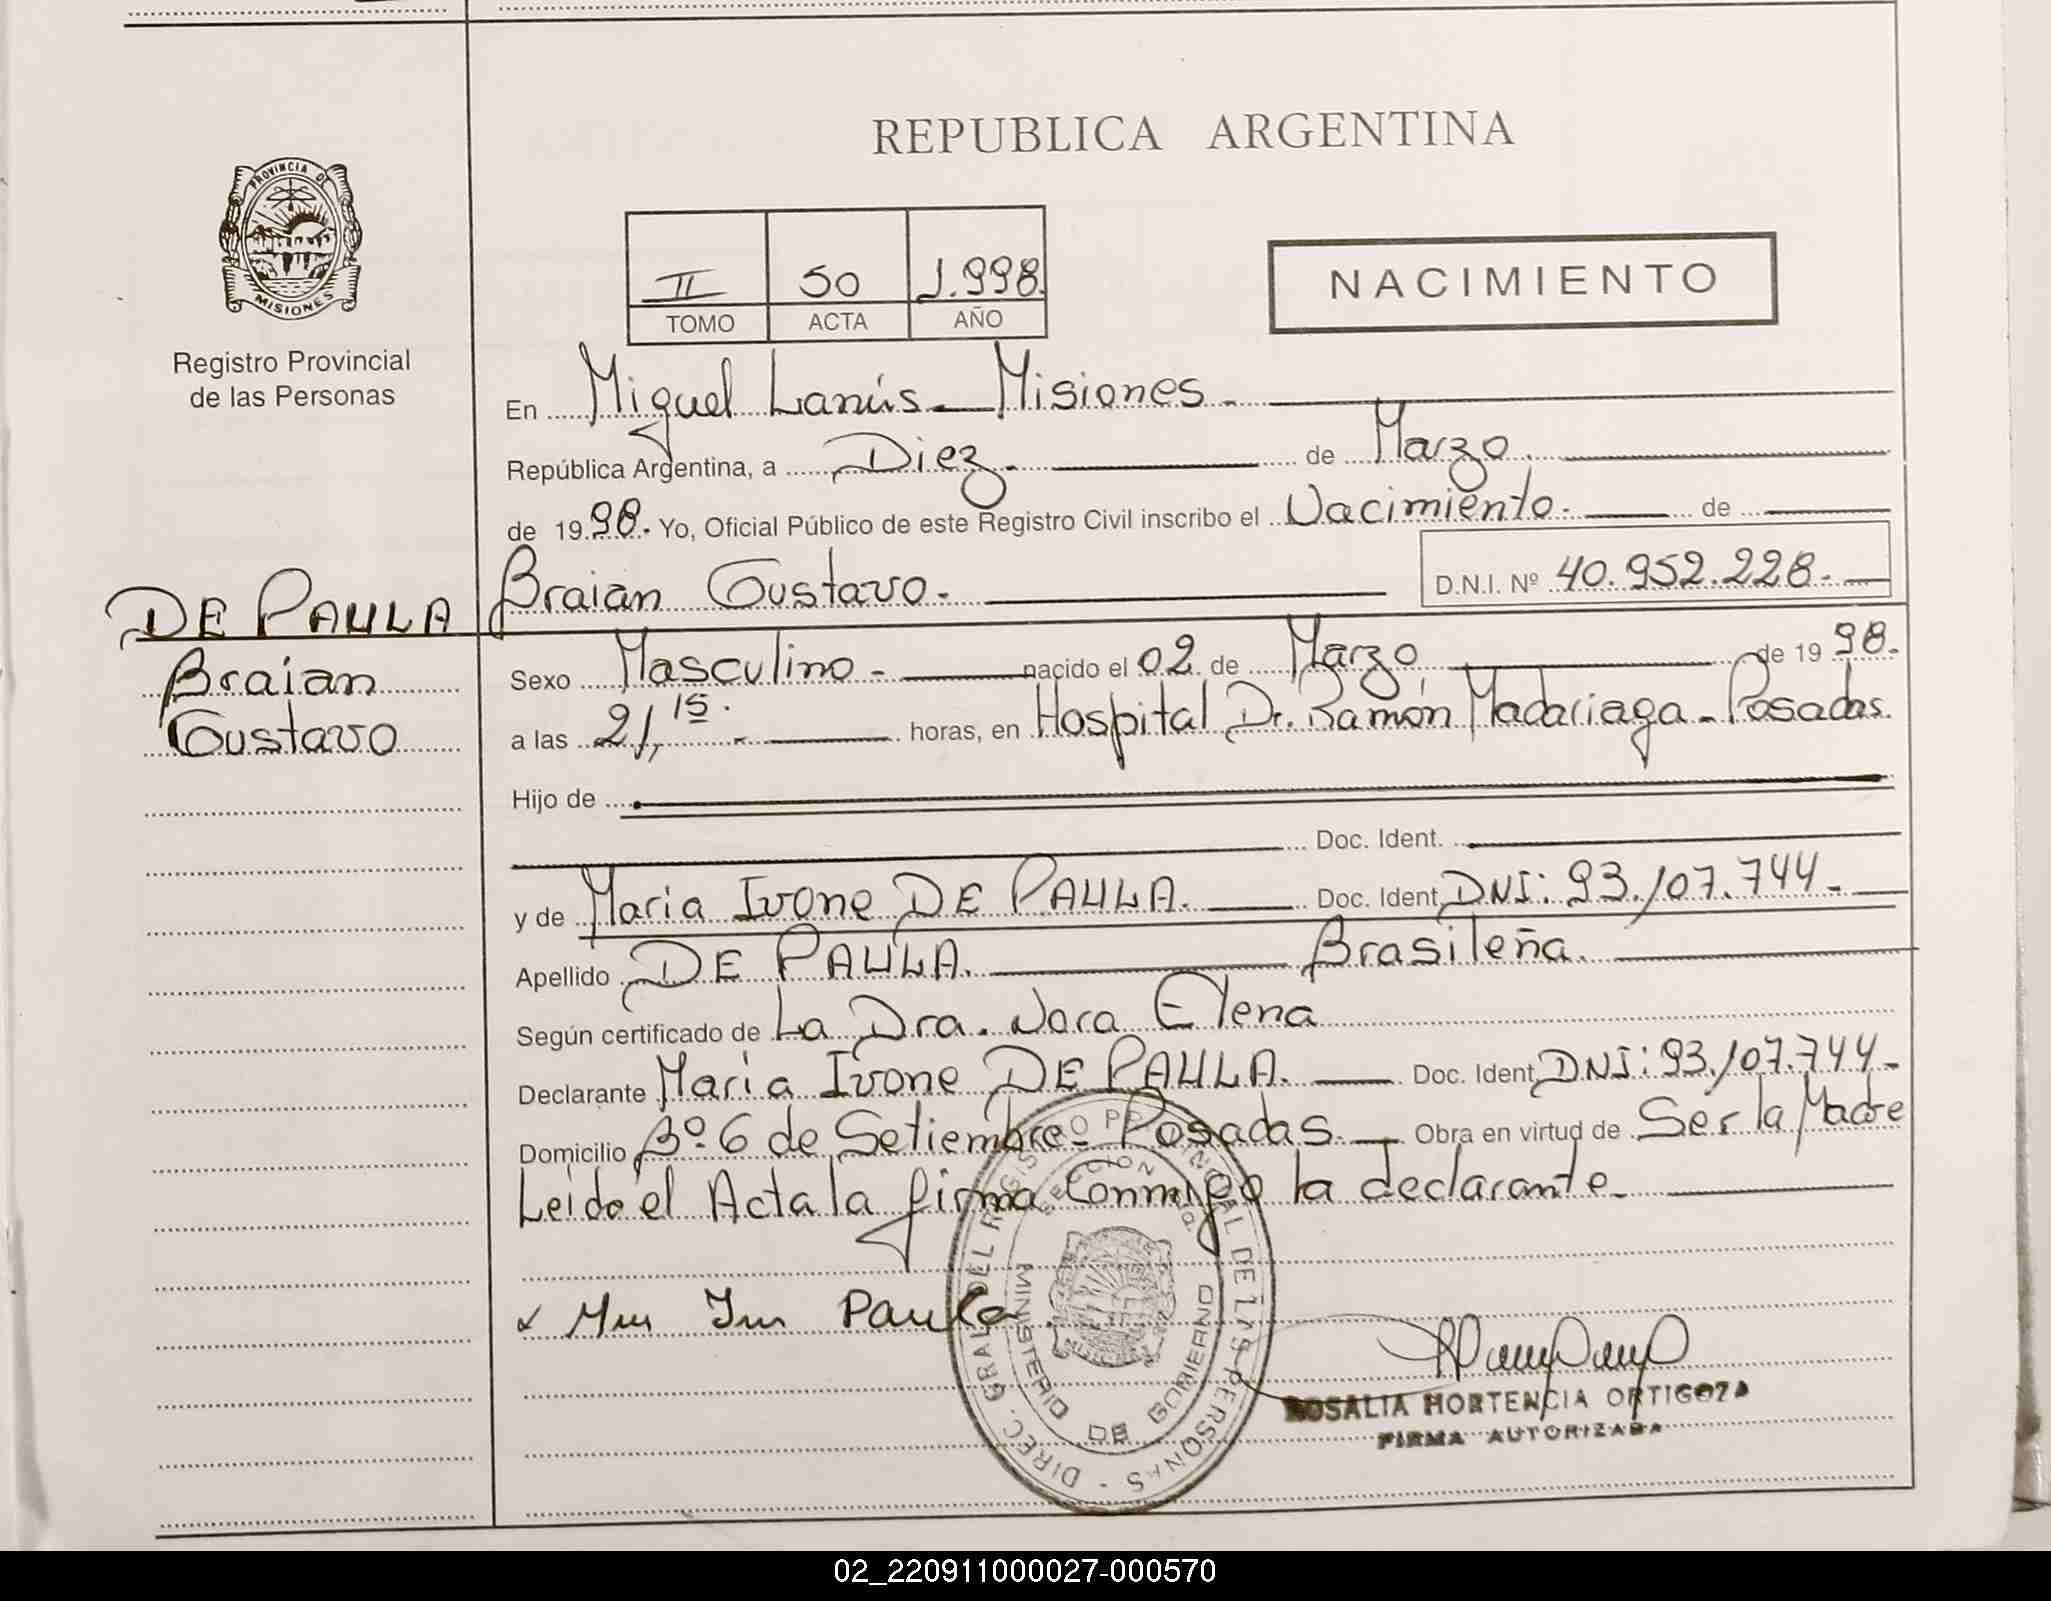 REPUBLICA ARGENTINA
PROVINCIA DE
MISIONES
Registro Provincial
de las Personas
II 50 1.998.
TOMO ACTA AÑO
NACIMIENTO
En Miguel Lanús - Misiones.
República Argentina, a Diez. de Marzo.
de 19 98. Yo, Oficial Público de este Registro Civil inscribo el Nacimiento. de
DE PAULA Braian Gustavo. D.N.I. Nº 40.952.228.
Braian
Gustavo
Sexo Masculino - nacido el 02 de Marzo de 19 98.
a las 21,15. horas, en Hospital Dr. Ramón Madariaga - Posadas.
Hijo de
Doc. Ident.
y de Maria Ivone DE PAULA. Doc. Ident. DNI: 93.107.744.
Apellido DE PAULA. Brasileña.
Según certificado de La Dra. Nora Elena
Declarante Maria Ivone DE PAULA. Doc. Ident. DNI: 93.107.744-
Domicilio Bº. 6 de Setiembre - Posadas. Obra en virtud de Ser la Madre
Leido el Acta la firma Conmigo la declarante.
Paula
DIREC. GRAL. DEL REGISTRO PROVINCIAL DE LAS PERSONAS -
SECCION
MINISTERIO DE GOBIERNO
ROSALIA HORTENCIA ORTIGOZA
FIRMA AUTORIZADA
02_220911000027-000570